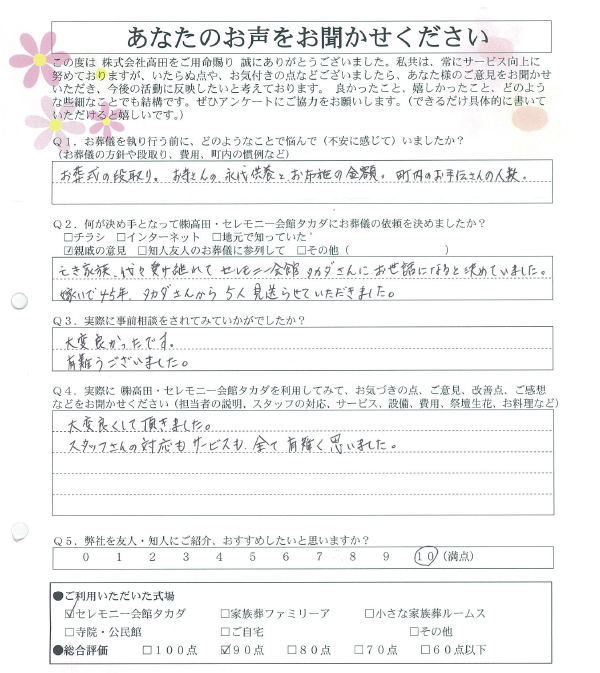 あなたのお声をお聞かせください
この度は 株式会社高田をご用命賜り 誠にありがとうございました。私共は、常にサービス向上に
努めておりますが、いたらぬ点や、お気付きの点などございましたら、あなた様のご意見をお聞かせ
いただき、今後の活動に反映したいと考えております。 良かったこと、嬉しかったこと、どのよう
な些細なことでも結構です。ぜひアンケートにご協力をお願いします。（できるだけ具体的に書いて
いただけると嬉しいです。）
Q１．お葬儀を執り行う前に、どのようなことで悩んで（不安に感じて）いましたか？
（お葬儀の方針や段取り、費用、町内の慣例など）
お葬式の段取り。お寺さんの永代供養とお布施の金額。町内のお手伝さんの人数。
Q２．何が決め手となって㈱高田・セレモニー会館タカダにお葬儀の依頼を決めましたか？
□チラシ □インターネット □地元で知っていた
☑親戚の意見 □知人友人のお葬儀に参列して □その他（ ）
家族、代々受け継いで セレモニー会館 タカダさんに お世話になると決めていました。
嫁いで45年、タカダさんから 5人見送らせていただきました。
Q３．実際に事前相談をされてみていかがでしたか？
大変良かったです。
有難うございました。
Q４．実際に ㈱高田・セレモニー会館タカダを利用してみて、お気づきの点、ご意見、改善点、ご感想
などをお聞かせください（担当者の説明、スタッフの対応、サービス、設備、費用、祭壇生花、お料理など）
大変良くして頂きました。
スタッフさんの対応もサービスも、全て有難く思いました。
Q５．弊社を友人・知人にご紹介、おすすめしたいと思いますか？
0 1 2 3 4 5 6 7 8 9 10（満点）
●ご利用いただいた式場
☑セレモニー会館タカダ □家族葬ファミリーア □小さな家族葬ルームス
□寺院・公民館 □ご自宅 □その他
●総合評価 □１００点 ☑９０点 □８０点 □７０点 □６０点以下